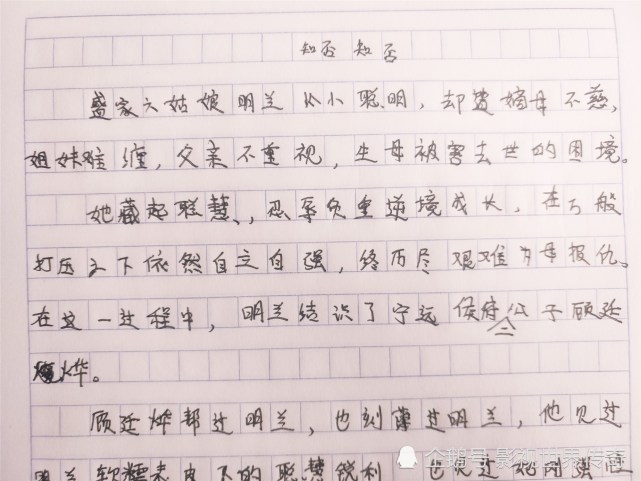 知否 知否
盛家六姑娘明兰从小聪明，却遭嫡母不慈，
姐妹难缠，父亲不重视，生母被害去世的困境。
她藏起聪慧，忍辱负重逆境成长，在万般
打压之下依然自立自强，终历尽艰难为母报仇。
在这一过程中，明兰结识了宁远侯府二公子顾廷
烨。
顾廷烨帮过明兰，也刻薄过明兰，他见过
明兰软糯表皮下的聪慧锐利，也见过她刚强
企鹅号